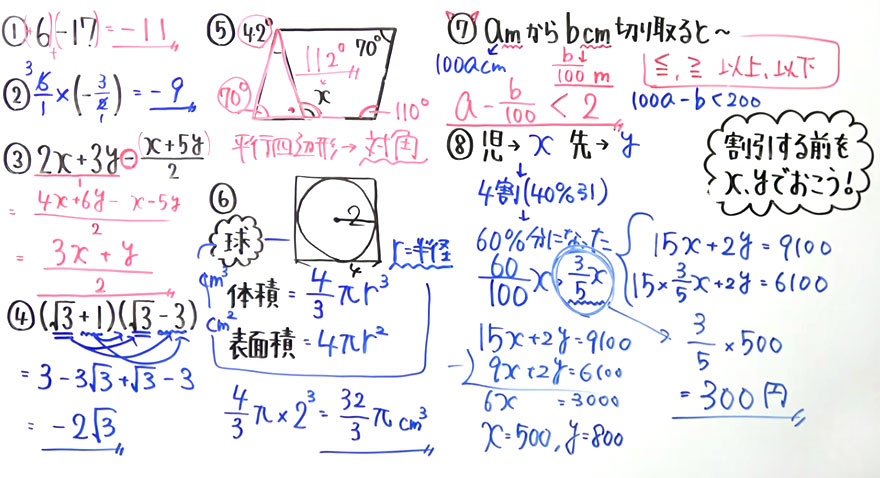 ① +6 -17 = -11
② 6/1 × (-3/2) = -9
3
1
③ 2x+3y - (x+5y)/2
= (4x+6y - x-5y)/2
= (3x + y)/2
④ (√3 +1)(√3 -3)
= 3-3√3+√3-3
= -2√3
⑤ 42°
70°
112°
x
70°
110°
平行四辺形→対角
⑥
2
4
球
r=半径
cm³
体積 = 4/3 πr³
cm²
表面積 = 4πr²
4/3 π×2³ = 32/3 π cm³
⑦ amからbcm切り取ると〜
100acm
b/100 m
≦, ≧ 以上、以下
a - b/100 < 2
100a-b<200
⑧ 児→x 先→y
割引する前を
x、yでおこう!
4割(40%引)
60%分になった
60/100 x, 3/5 x
15x+2y=9100
15×3/5x+2y=6100
15x+2y=9100
-) 9x+2y=6100
6x =3000
x=500, y=800
3/5 ×500
=300円